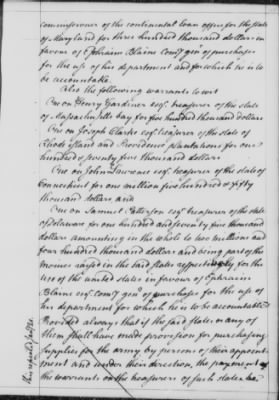 commissioner of the continental loan office for the state
of Maryland for three hundred thousand dollars in
favour of Ephraim Blaine Comy genl of purchases
for the use of his department and for which he is to
be accountable.
Also the following warrants to wit
One on Henry Gardiner esqr treasurer of the state
of Massachusetts bay for five hundred thousand dollars
One on Joseph Clarke esqr treasurer of the state of
Rhode Island and Providence plantations for one
hundred & seventy five thousand dollars
One on John Lawrence esqr treasurer of the state of
Connecticut for one million five hundred & fifty
thousand dollars and
One on Samuel Patterson esqr treasurer of the state
of Delaware for one hundred and seventy five thousand
dollars amounting in the whole to two millions and
four hundred thousand dollars and being part of the
monies raised in the said states respectively for the
use of the united states in favour of Ephraim
Blaine esqr comy genl of purchases for the use of
his department for which he is to be accountable
Provided always that if the said states or any of
them shall have made provision for purchasing
supplies for the army by persons of their appoint
ment and under their direction, the payment of
the warrants on the treasurers of such states